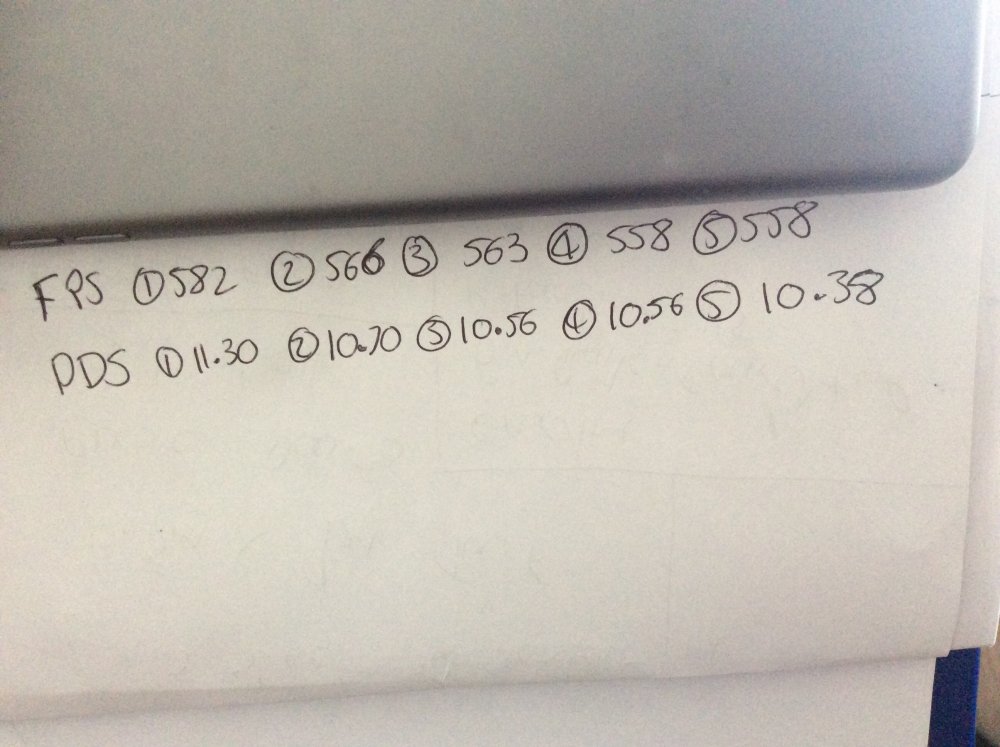 FPS ① 582 ② 566 ③ 563 ④ 558 ⑤ 558
PDS ① 11.30 ② 10.70 ③ 10.56 ④ 10.56 ⑤ 10.38